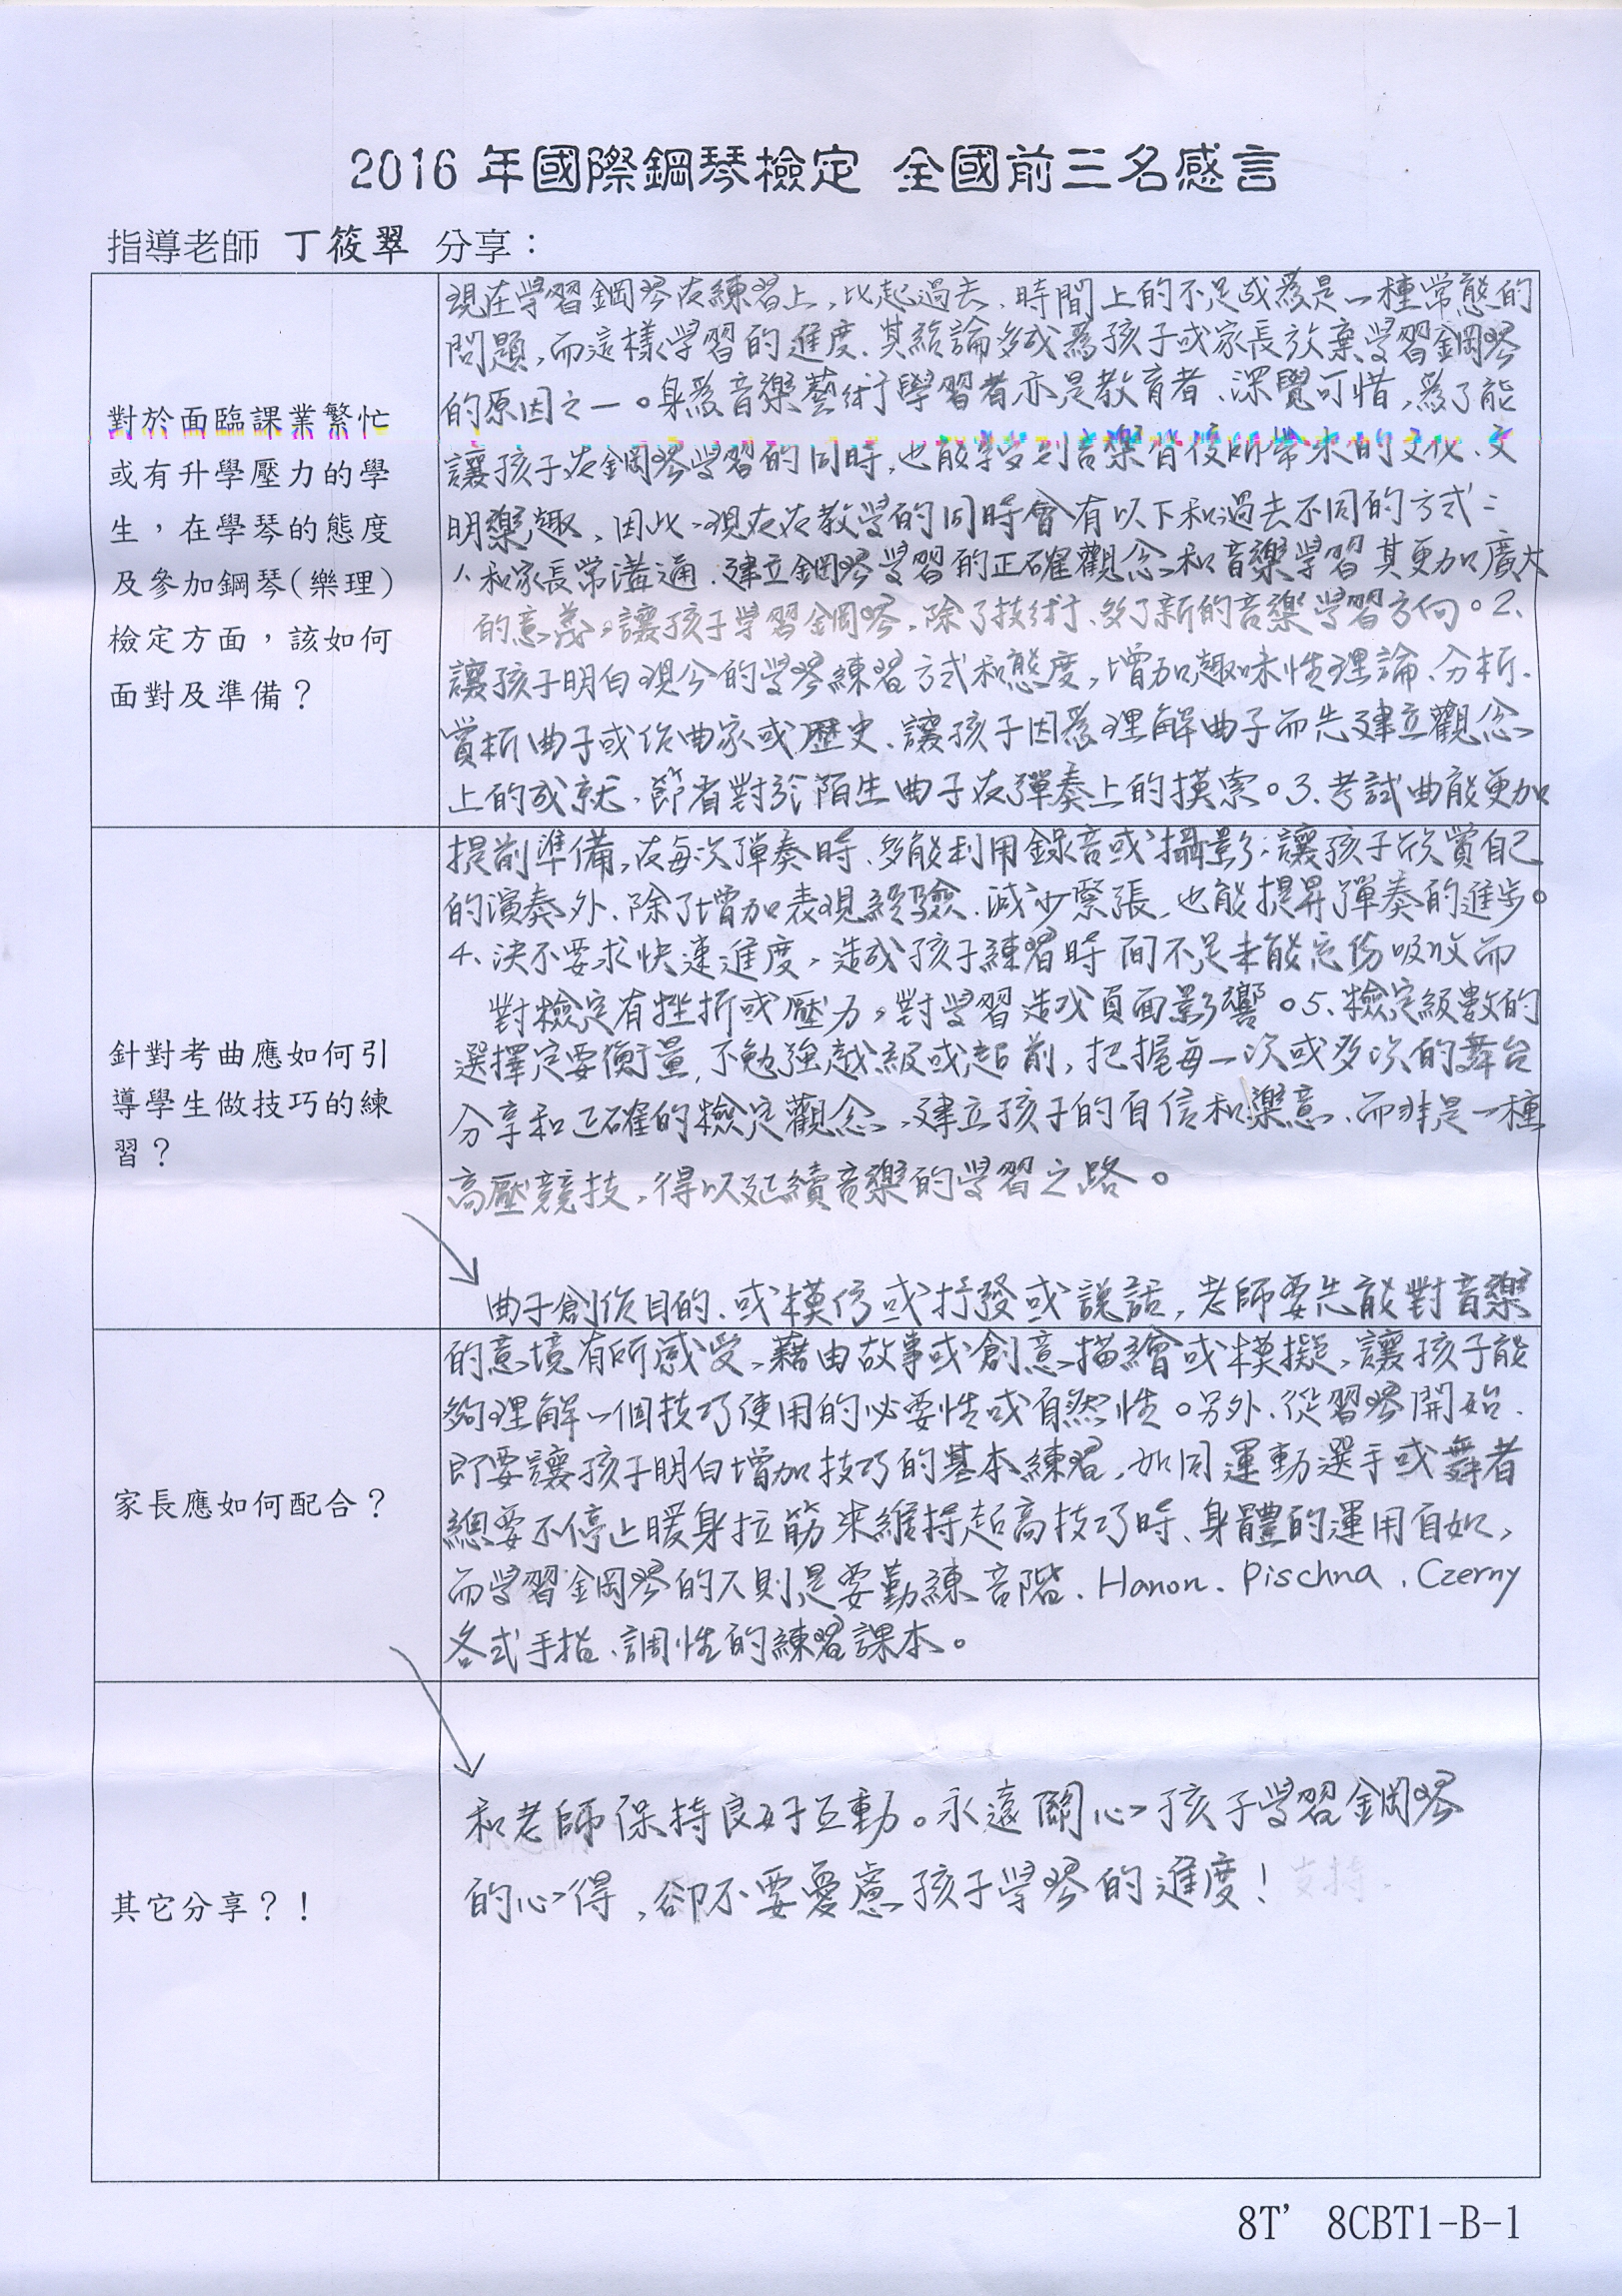 2016 年國際鋼琴檢定 全國前三名感言
指導老師 丁筱翠 分享：
對於面臨課業繁忙
或有升學壓力的學
生，在學琴的態度
及參加鋼琴(樂理)
檢定方面，該如何
面對及準備？
現在學習鋼琴在練習上，比起過去、時間上的不足成為是一種常態的
問題，而這樣學習的進度、其結論多成為孩子或家長放棄學習鋼琴
的原因之一。身為音樂藝術學習者亦是教育者、深覺可惜，為了能
讓孩子在鋼琴學習的同時，也能學習到音樂背後所帶來的文化、文
明樂趣，因此，現在在教學的同時會有以下和過去不同的方式：
1、和家長常溝通、建立鋼琴學習的正確觀念和音樂學習其更加廣大
的意義，讓孩子學習鋼琴，除了技術、多了新的音樂學習方向。2、
讓孩子明白現今的學琴練習方式和態度，增加趣味性理論、分析、
賞析曲子或作曲家或歷史、讓孩子因為理解曲子而先建立觀念
上的成就、節省對於陌生曲子在彈奏上的摸索。3、考試曲能更加
針對考曲應如何引
導學生做技巧的練
習？
提前準備，在每次彈奏時、多能利用錄音或攝影，讓孩子欣賞自己
的演奏外、除了增加表現經驗、減少緊張，也能提昇彈奏的進步。
4、決不要求快速進度，造成孩子練習時間不足未能充份吸收而
對檢定有挫折或壓力，對學習造成負面影響。5、檢定級數的
選擇定要衡量，不勉強越級或超前，把握每一次或多次的舞台
分享和正確的檢定觀念，建立孩子的自信和樂意、而非是一種
高壓競技，得以延續音樂的學習之路。
曲子創作目的、或模仿或抒發或說話，老師要先能對音樂
家長應如何配合？
的意境有所感受，藉由故事或創意描繪或模擬，讓孩子能
夠理解一個技巧使用的必要性或自然性。另外、從習琴開始、
即要讓孩子明白增加技巧的基本練習，如同運動選手或舞者
總要不停止暖身拉筋來維持超高技巧時、身體的運用自如，
而學習鋼琴的人則是要勤練音階、Hanon、Pischna、Czerny
各式手指、調性的練習課本。
其它分享？！
和老師保持良好互動。永遠關心孩子學習鋼琴
的心得，卻不要憂慮孩子學琴的進度！
8T’ 8CBT1-B-1